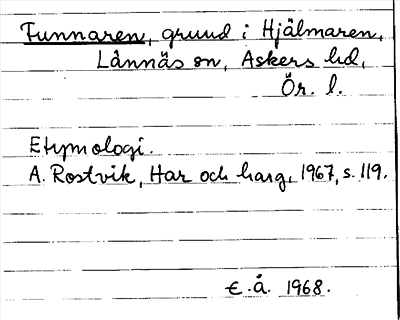 Funnaren, grund i Hjälmaren,
Lännäs sn, Askers hd,
Ör. l.
Etymologi.
A. Rostvik, Har och harg, 1967, s. 119.
€.å. 1968.